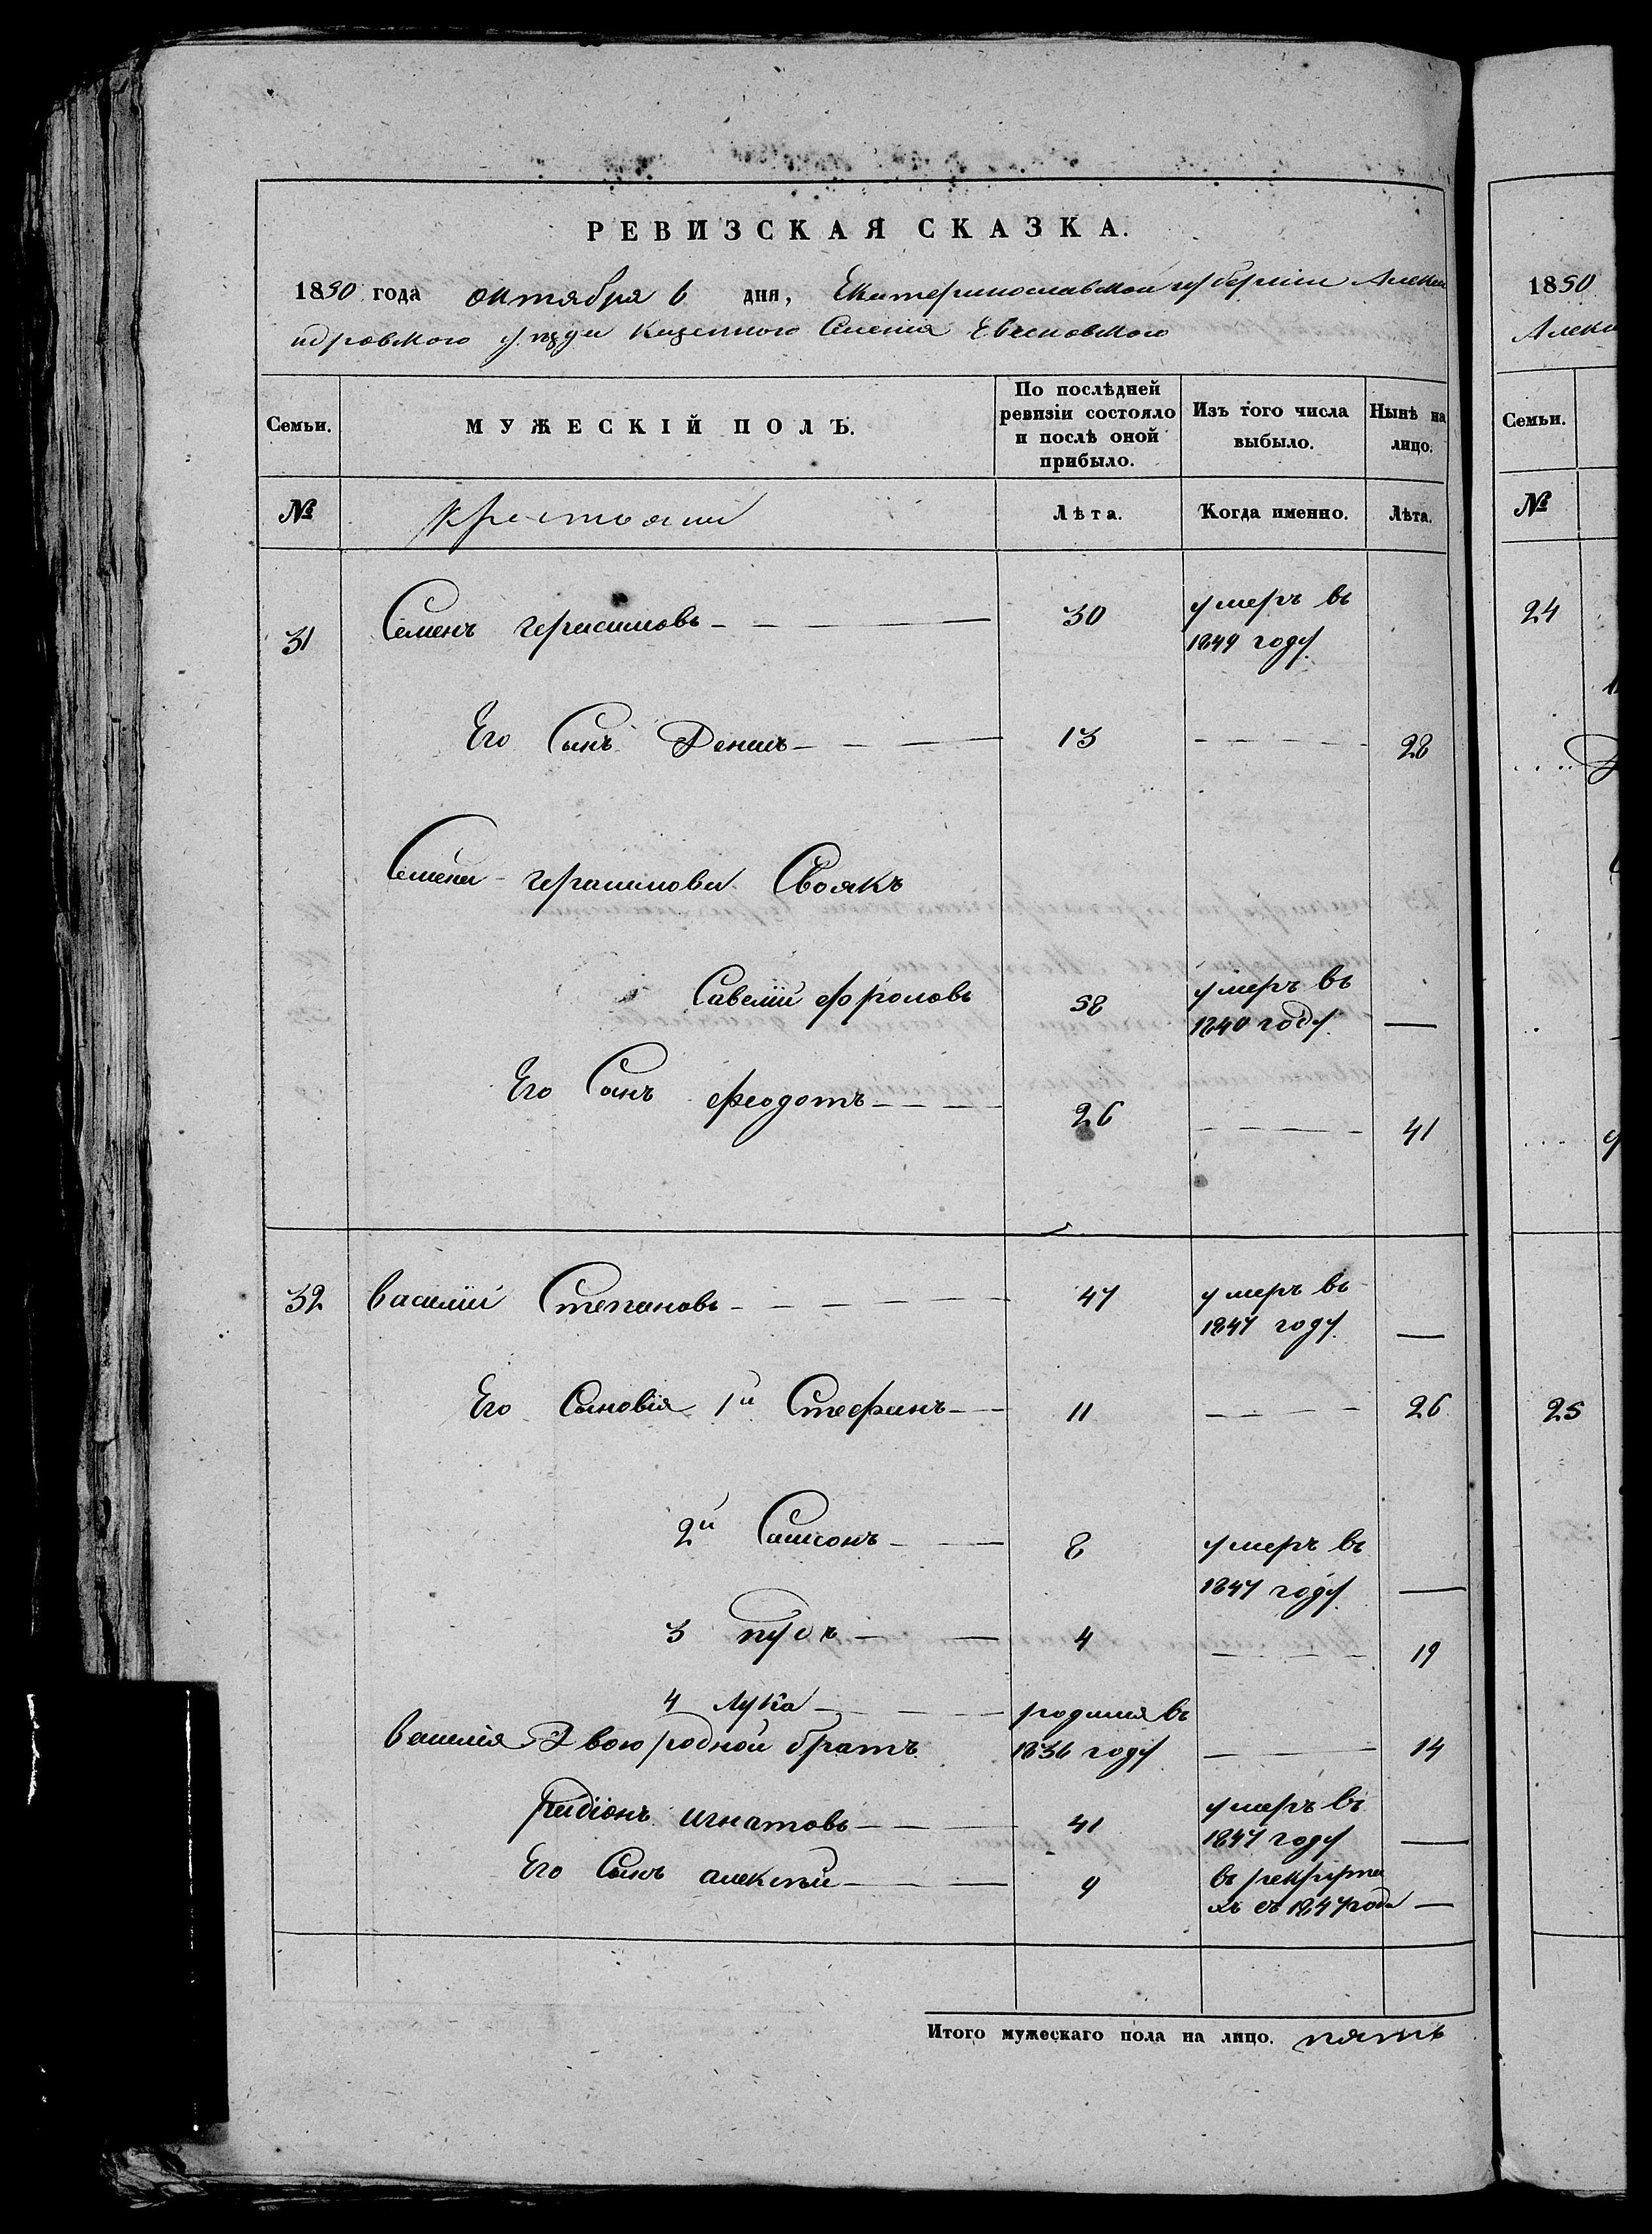 РЕВИЗСКАЯ СКАЗКА.
1850 года октября 6 дня, Екатеринославской губерніи Алекса
ндровского уѣзда Казенного Селенія
Семьи.
МУЖЕСКІЙ ПОЛЪ.
По послѣдней
ревизіи состояло
и послѣ оной
прибыло.
Изъ того числа
выбыло.
Нынѣ на
лицо.
№
крестьяни
Лѣта.
Когда именно.
Лѣта.
31 Семенъ герасимовъ 30 умеръ въ
1849 году
Его Сынъ Денисъ 13 28
Семена герасимова Своякъ
Савелій фроловъ 58 умеръ въ
1840 году —
Его Сынъ феодотъ 26 41
32 василій Степановъ 47 умеръ въ
1847 году —
Его Сыновія 1й Стефанъ 11 26
2й Самсонъ 8 умеръ въ
1847 году —
3 пудъ 4 19
4 Лука родился въ
василія Двоюродной братъ 1836 году 14
родіонъ игнатовъ 41 умеръ въ
1847 году —
Его Сынъ алексѣй 9 въ рекрута
хъ съ 1847 года —
Итого мужескаго пола на лицо. пять
1850
Алекса
Семьи.
№
24
25